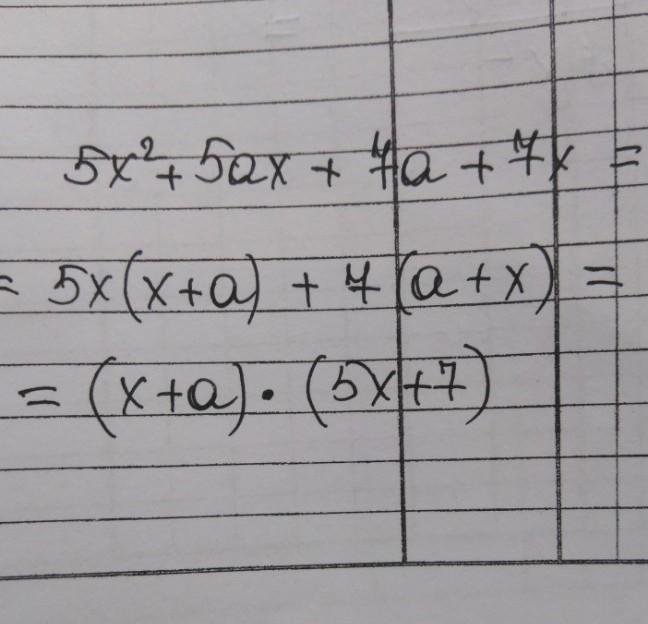 5x²+5ax+7a+7x =
= 5x(x+a) + 7(a+x) =
= (x+a)·(5x+7)